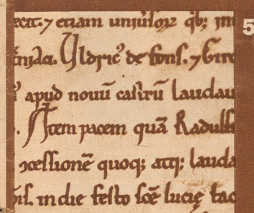 ꝛ etiam uniuſor qb;
Yldric' de fonſ. ꝛ Giro
apud nouū caſtrū laudau
Item pacem quā Radulf
ceſſionē quoq; atq; lauda
in die feſto ſcē lucię fac
5